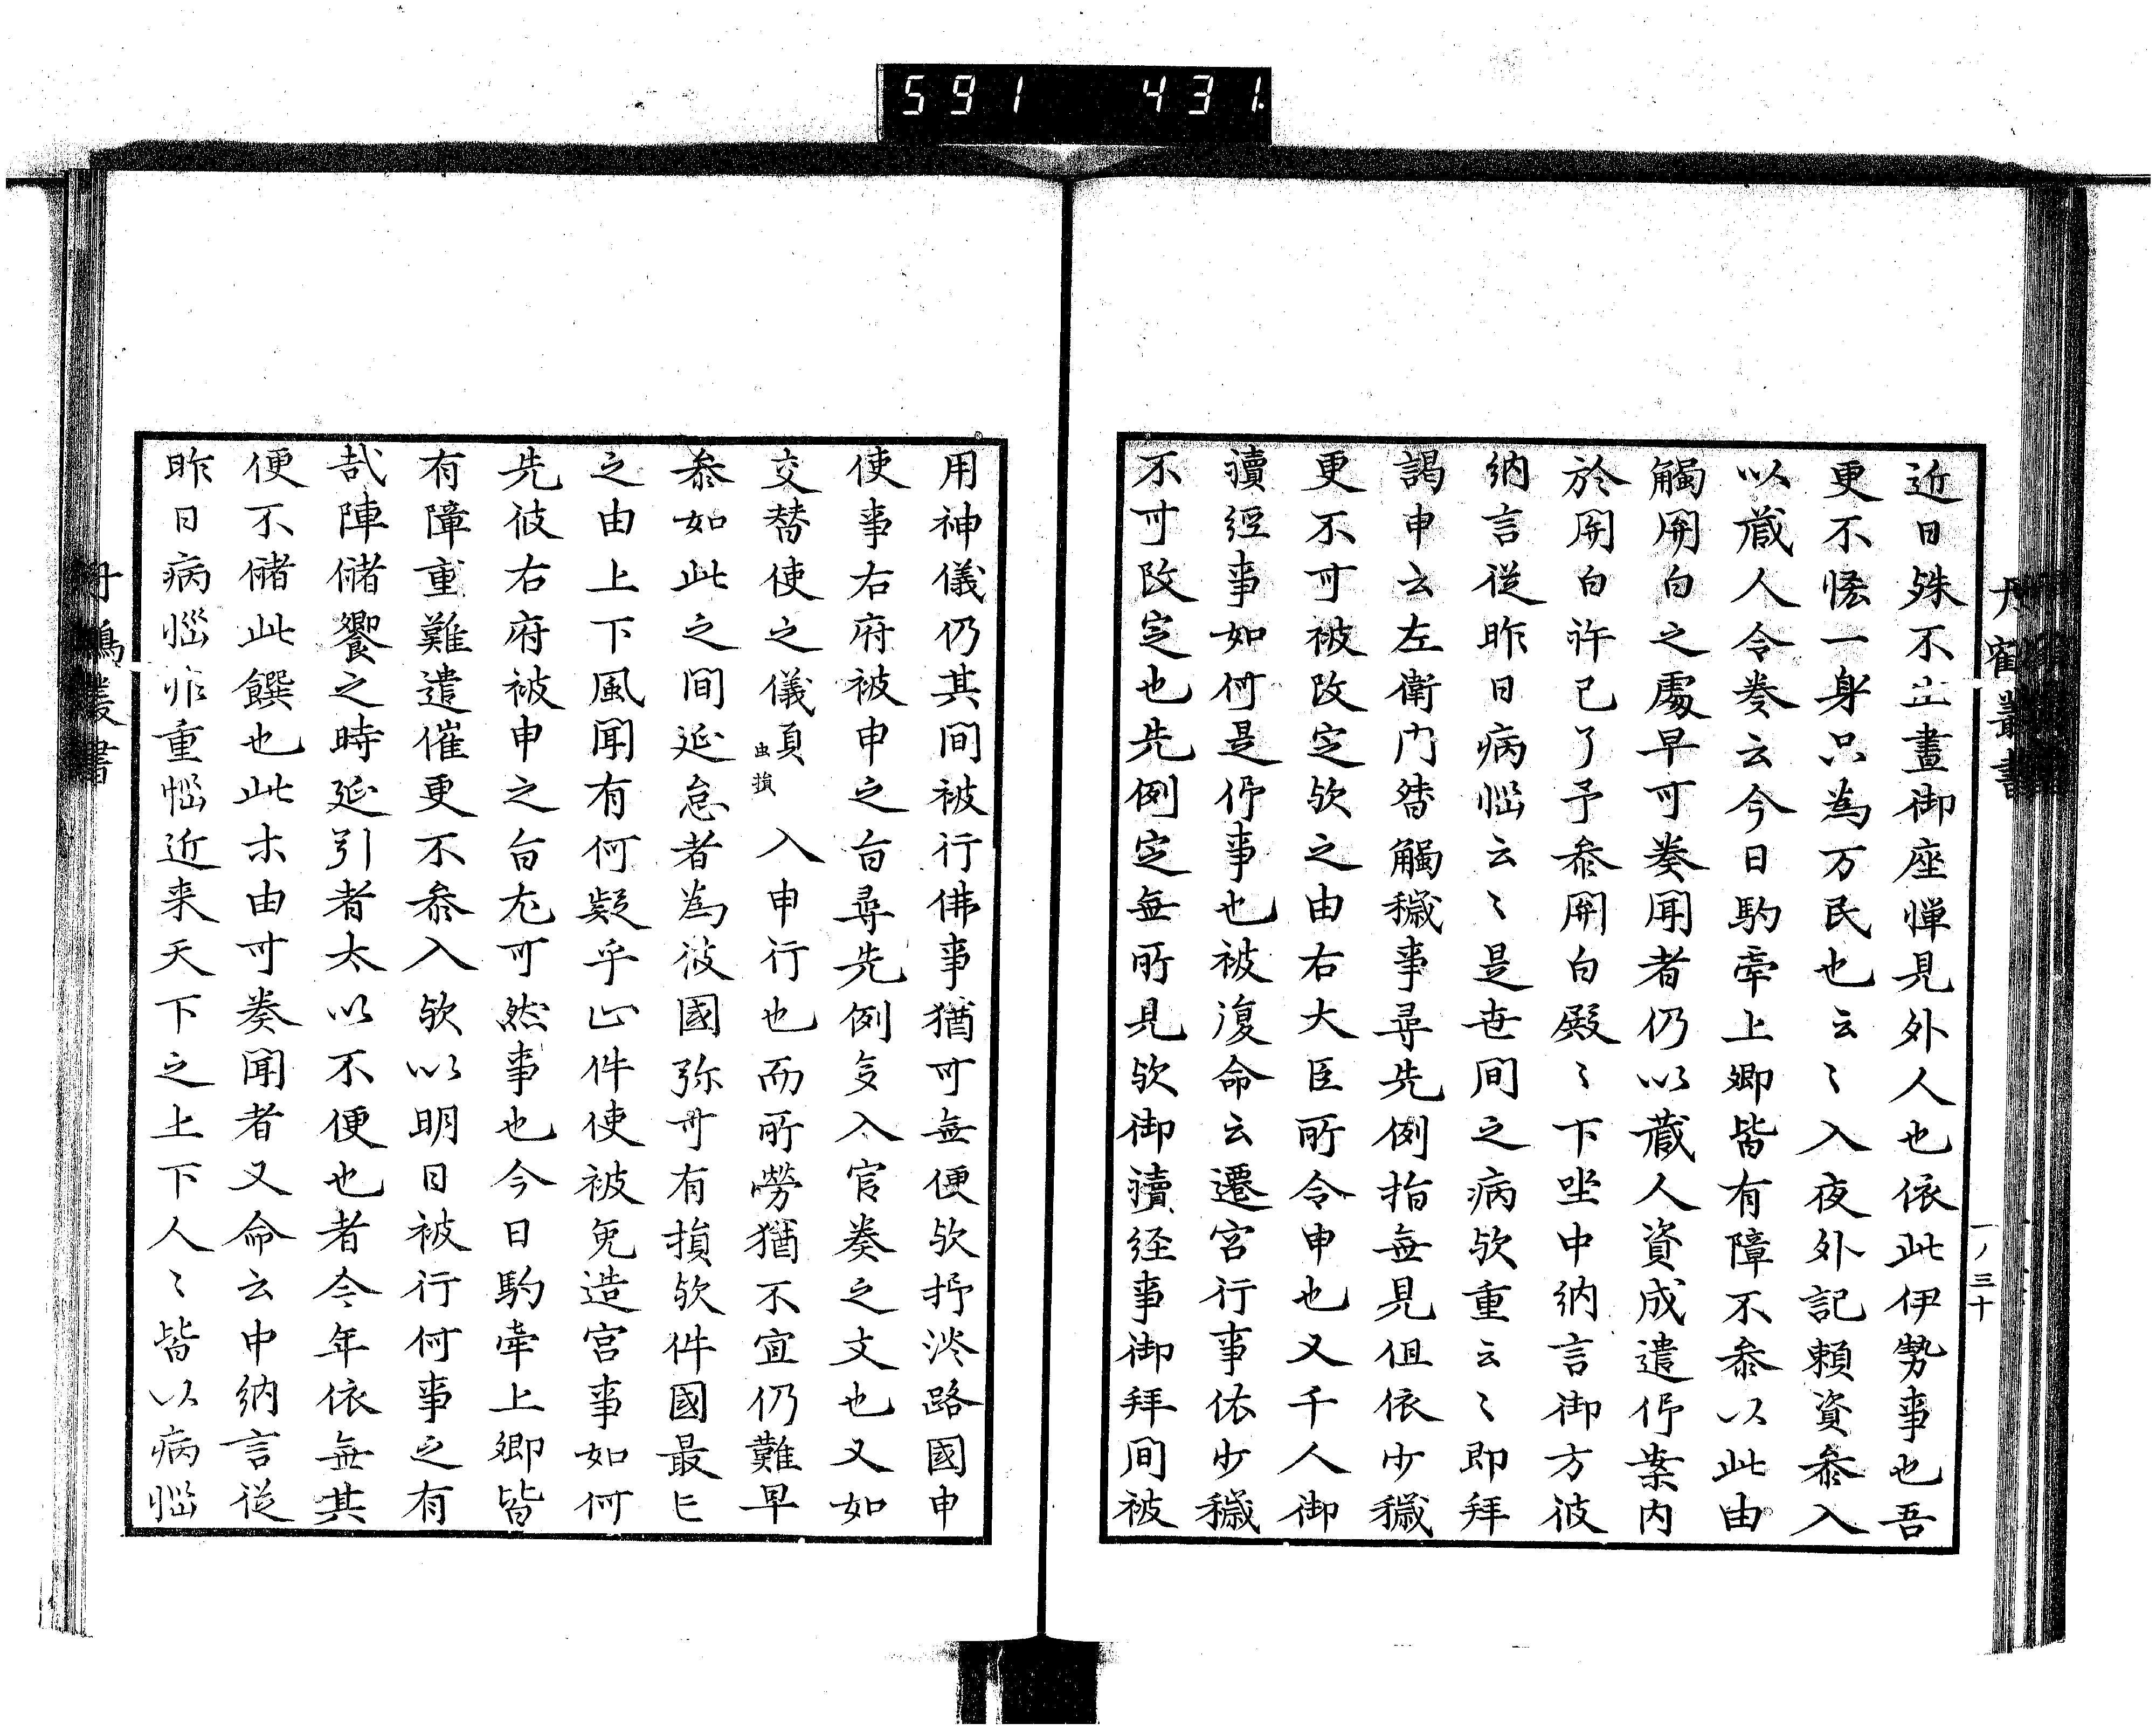 591 431
丹鶴叢書
近日殊不出晝御座憚見外人也依此伊勢事也吾
更不慭一身只為万民也云〻入夜外記頼資叅入
以蔵人令奏云今日駒牽上卿皆有障不叅以此由
觸関白之處早可奏聞者仍以蔵人資成遣伃案内
於関白許已了予叅関白殿〻下坐中納言御方彼
納言従昨日病惱云〻是世間之病欤重云〻即拜
謁申云左衛門督觸穢事尋先例指無見但依少穢
更不可被改定欤之由右大臣所令申也又千人御
讀經事如何是伃事也被復命云遷宮行事依少穢
不可改定也先例定無所見欤御讀経事御拜間被
一ノ三十
用神儀仍其間被行佛事猶可無便欤抒淡路國申
使事右府被申之旨尋先例多入官奏之文也又如
交替使之儀頁虫損入申行也而所勞猶不宜仍難早
叅如此之間延怠者為彼國弥可有損欤件國最亡
之由上下風聞有何疑乎止件使被免造宮事如何
先彼右府被申之旨尤可然事也今日駒牽上卿皆
有障重難遣催更不叅入欤以明日被行何事之有
哉陣儲饗之時延引者太以不便也者今年依無其
便不儲此饌也此由可奏聞者又命云中納言従
昨日病惱非重惱近来天下之上下人〻皆以病惱
丹鶴叢書